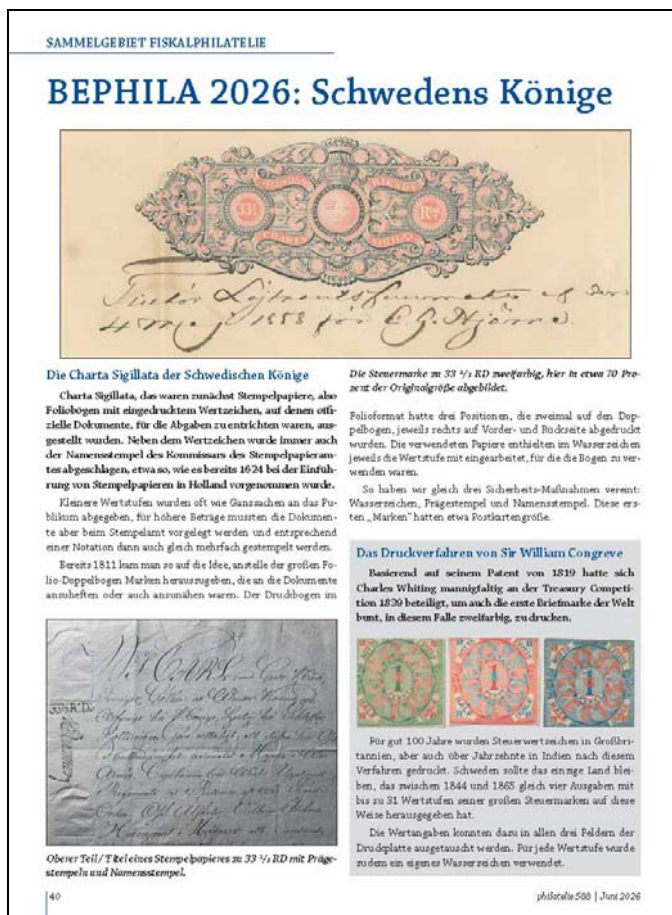 SAMMELGEBIET FISKALPHILATELIE
BEPHILA 2026: Schwedens Könige
33⅓
CHARTA
SIGILLATA
4 Maj 1858 för C. G. Hjörne.
Die Charta Sigillata der Schwedischen Könige
Charta Sigillata, das waren zunächst Stempelpapiere, also
Foliobögen mit eingedrucktem Wertzeichen, auf denen offi-
zielle Dokumente, für die Abgaben zu entrichten waren, aus-
gestellt wurden. Neben dem Wertzeichen wurde immer auch
der Namensstempel des Kommissars des Stempelpapieram-
tes abgeschlagen, etwa so, wie es bereits 1624 bei der Einfüh-
rung von Stempelpapieren in Holland vorgenommen wurde.
Kleinere Wertstufen wurden oft wie Ganzsachen an das Pu-
blikum abgegeben, für höhere Beträge mussten die Dokumen-
te aber beim Stempelamt vorgelegt werden und entsprechend
einer Notation dann auch gleich mehrfach gestempelt werden.
Bereits 1811 kam man so auf die Idee, anstelle der großen Fo-
lio-Doppelbogen Marken herauszugeben, die an die Dokumente
anzuheften oder auch anzunähen waren. Der Druckbogen im
33⅓ R.D.
Oberer Teil/Titel eines Stempelpapieres zu 33 ⅓ RD mit Präge-
stempeln und Namensstempel.
Die Steuermarke zu 33 ⅓ RD zweifarbig, hier in etwa 70 Pro-
zent der Originalgröße abgebildet.
Folioformat hatte drei Positionen, die zweimal auf den Dop-
pelbogen, jeweils rechts auf Vorder- und Rückseite abgedruckt
wurden. Die verwendeten Papiere enthielten im Wasserzeichen
jeweils die Wertstufe mit eingearbeitet, für die die Bogen zu ver-
wenden waren.
So haben wir gleich drei Sicherheits-Maßnahmen vereint:
Wasserzeichen, Prägestempel und Namensstempel. Diese ers-
ten „Marken" hatten etwa Postkartengröße.
Das Druckverfahren von Sir William Congreve
Basierend auf seinem Patent von 1819 hatte sich
Charles Whiting mannigfaltig an der Treasury Competi-
tion 1839 beteiligt, um auch die erste Briefmarke der Welt
bunt, in diesem Falle zweifarbig, zu drucken.
1 1 1
Für gut 100 Jahre wurden Steuerwertzeichen in Großbri-
tannien, aber auch über Jahrzehnte in Indien nach diesem
Verfahren gedruckt. Schweden sollte das einzige Land blei-
ben, das zwischen 1844 und 1865 gleich vier Ausgaben mit
bis zu 31 Wertstufen seiner großen Steuermarken auf diese
Weise herausgegeben hat.
Die Wertangaben konnten dazu in allen drei Feldern der
Druckplatte ausgetauscht werden. Für jede Wertstufe wurde
zudem ein eigenes Wasserzeichen verwendet.
40
philatelie 588 | Juni 2026